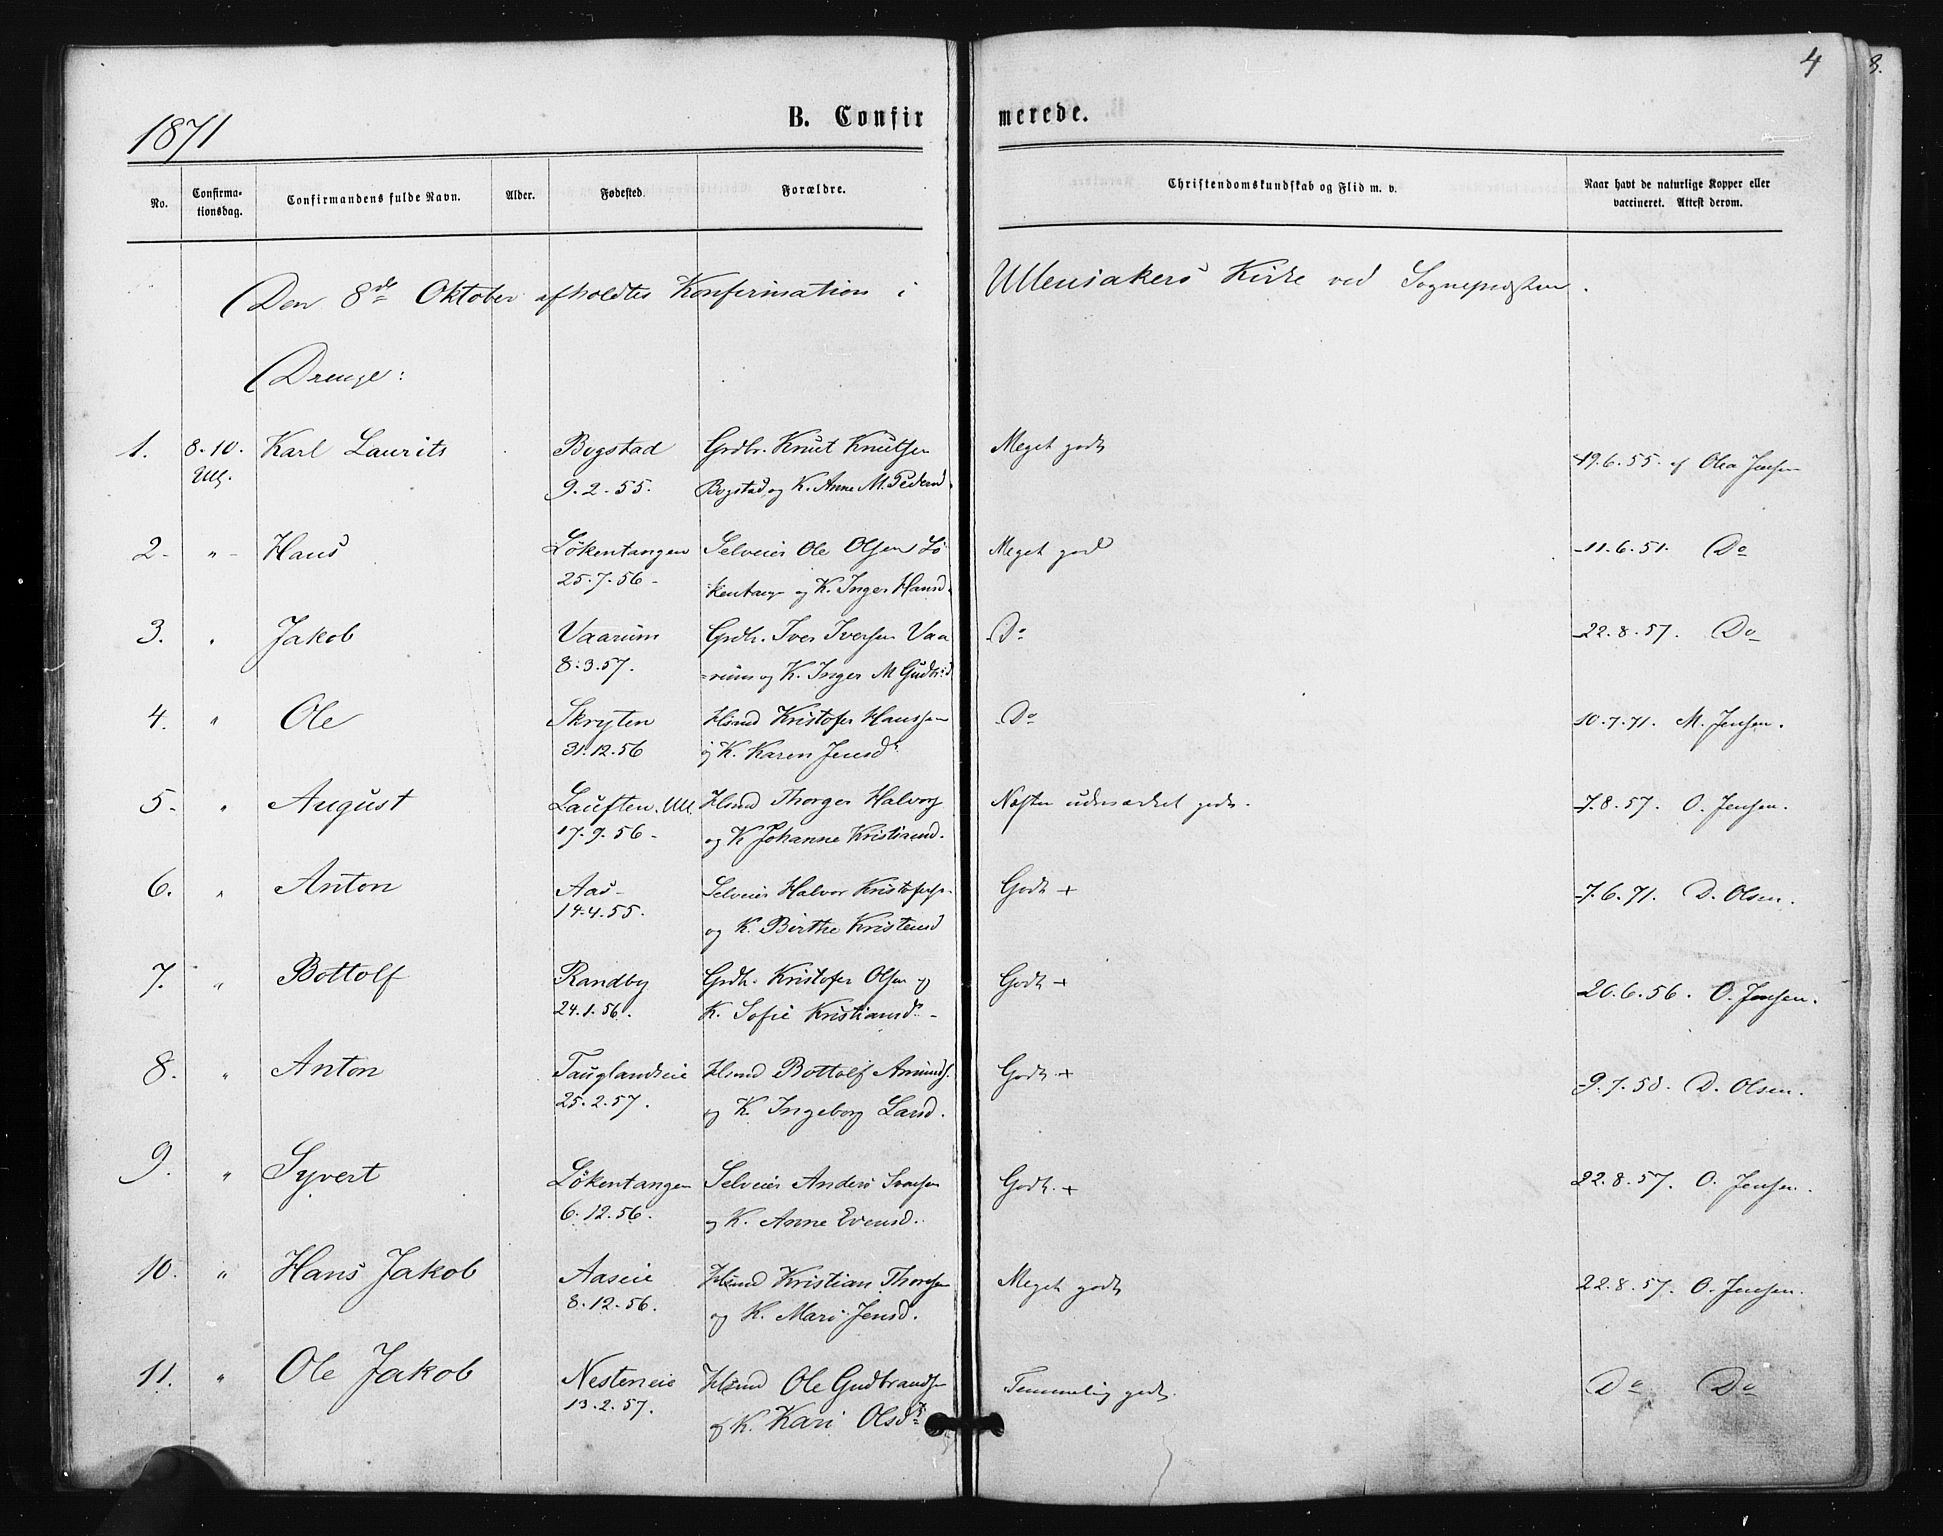 4
3.
1871
B. Confirmerede.
No.
Confirma-
tionsdag.
Confirmandens fulde Navn.
Alder.
Fødested.
Forældre.
Christendomskundskab og Flid m. v.
Naar havt de naturlige Kopper eller
vaccineret. Attest derom.
Den 8de Oktober afholdtes Konfirmation i Ullensakers Kirke ved Sognepræsten.
Drenge:
1. 8.10. Karl Laurits Bogstad Grdbr. Knut Knutsen Meget godt 19.6.55. af Olea Jensen
Ull. 9.2.55. Bogstad og K. Anne M. Pedersd.
2. " Hans Lökentangen Selveier Ole Olsen Lö Meget god 11.6.51. Do
25.7.56 kentang og K. Inger Hansd.
3. " Jakob Vaarum Grdb. Iver Iversen Vaa Do 22.8.57. Do
8.3.57. =rum og K. Inger M Gudbrd
4. " Ole Skryten Hsmd Kristofer Hanssen Do 10.7.71. M. Jensen.
31.12.56 og K. Karen Jensdr
5. " August Ull. Hsmd Thorger Halvors Næsten udmærket godt. 7.8.57. O. Jensen.
17.9.56 og K Johanne Kristiansd.
6. " Anton Aas Selveier Halvor Kristofers. Godt + 7.6.71. D. Olsen.
14.4.55. og K. Birthe Kristensd
7. " Bottolf Randby Grdb. Kristofer Olsen og Godt + 26.6.56. O. Jensen.
24.1.56. K. Sofie Kristiansdr
8. " Anton Tauglandseie Hsmd Bottolf Amunds. Godt + 9.7.58. D. Olsen.
25.2.57. og K. Ingeborg Larsd.
9. " Syvert Lökentangen Selveier Anders Ivarsen Godt. + 22.8.57. O. Jensen.
6.12.56. og K. Anne Evensd.
10. " Hans Jakob Aaseie Hsmd Kristian Thoresen Meget godt 22.8.57. O. Jensen.
8.12.56. og K. Mari Jensd.
11. " Ole Jakob Nesteneie Hsmd Ole Gudbrandsen Temmelig godt. Do Do
13.2.57. og K. Kari Olsdr